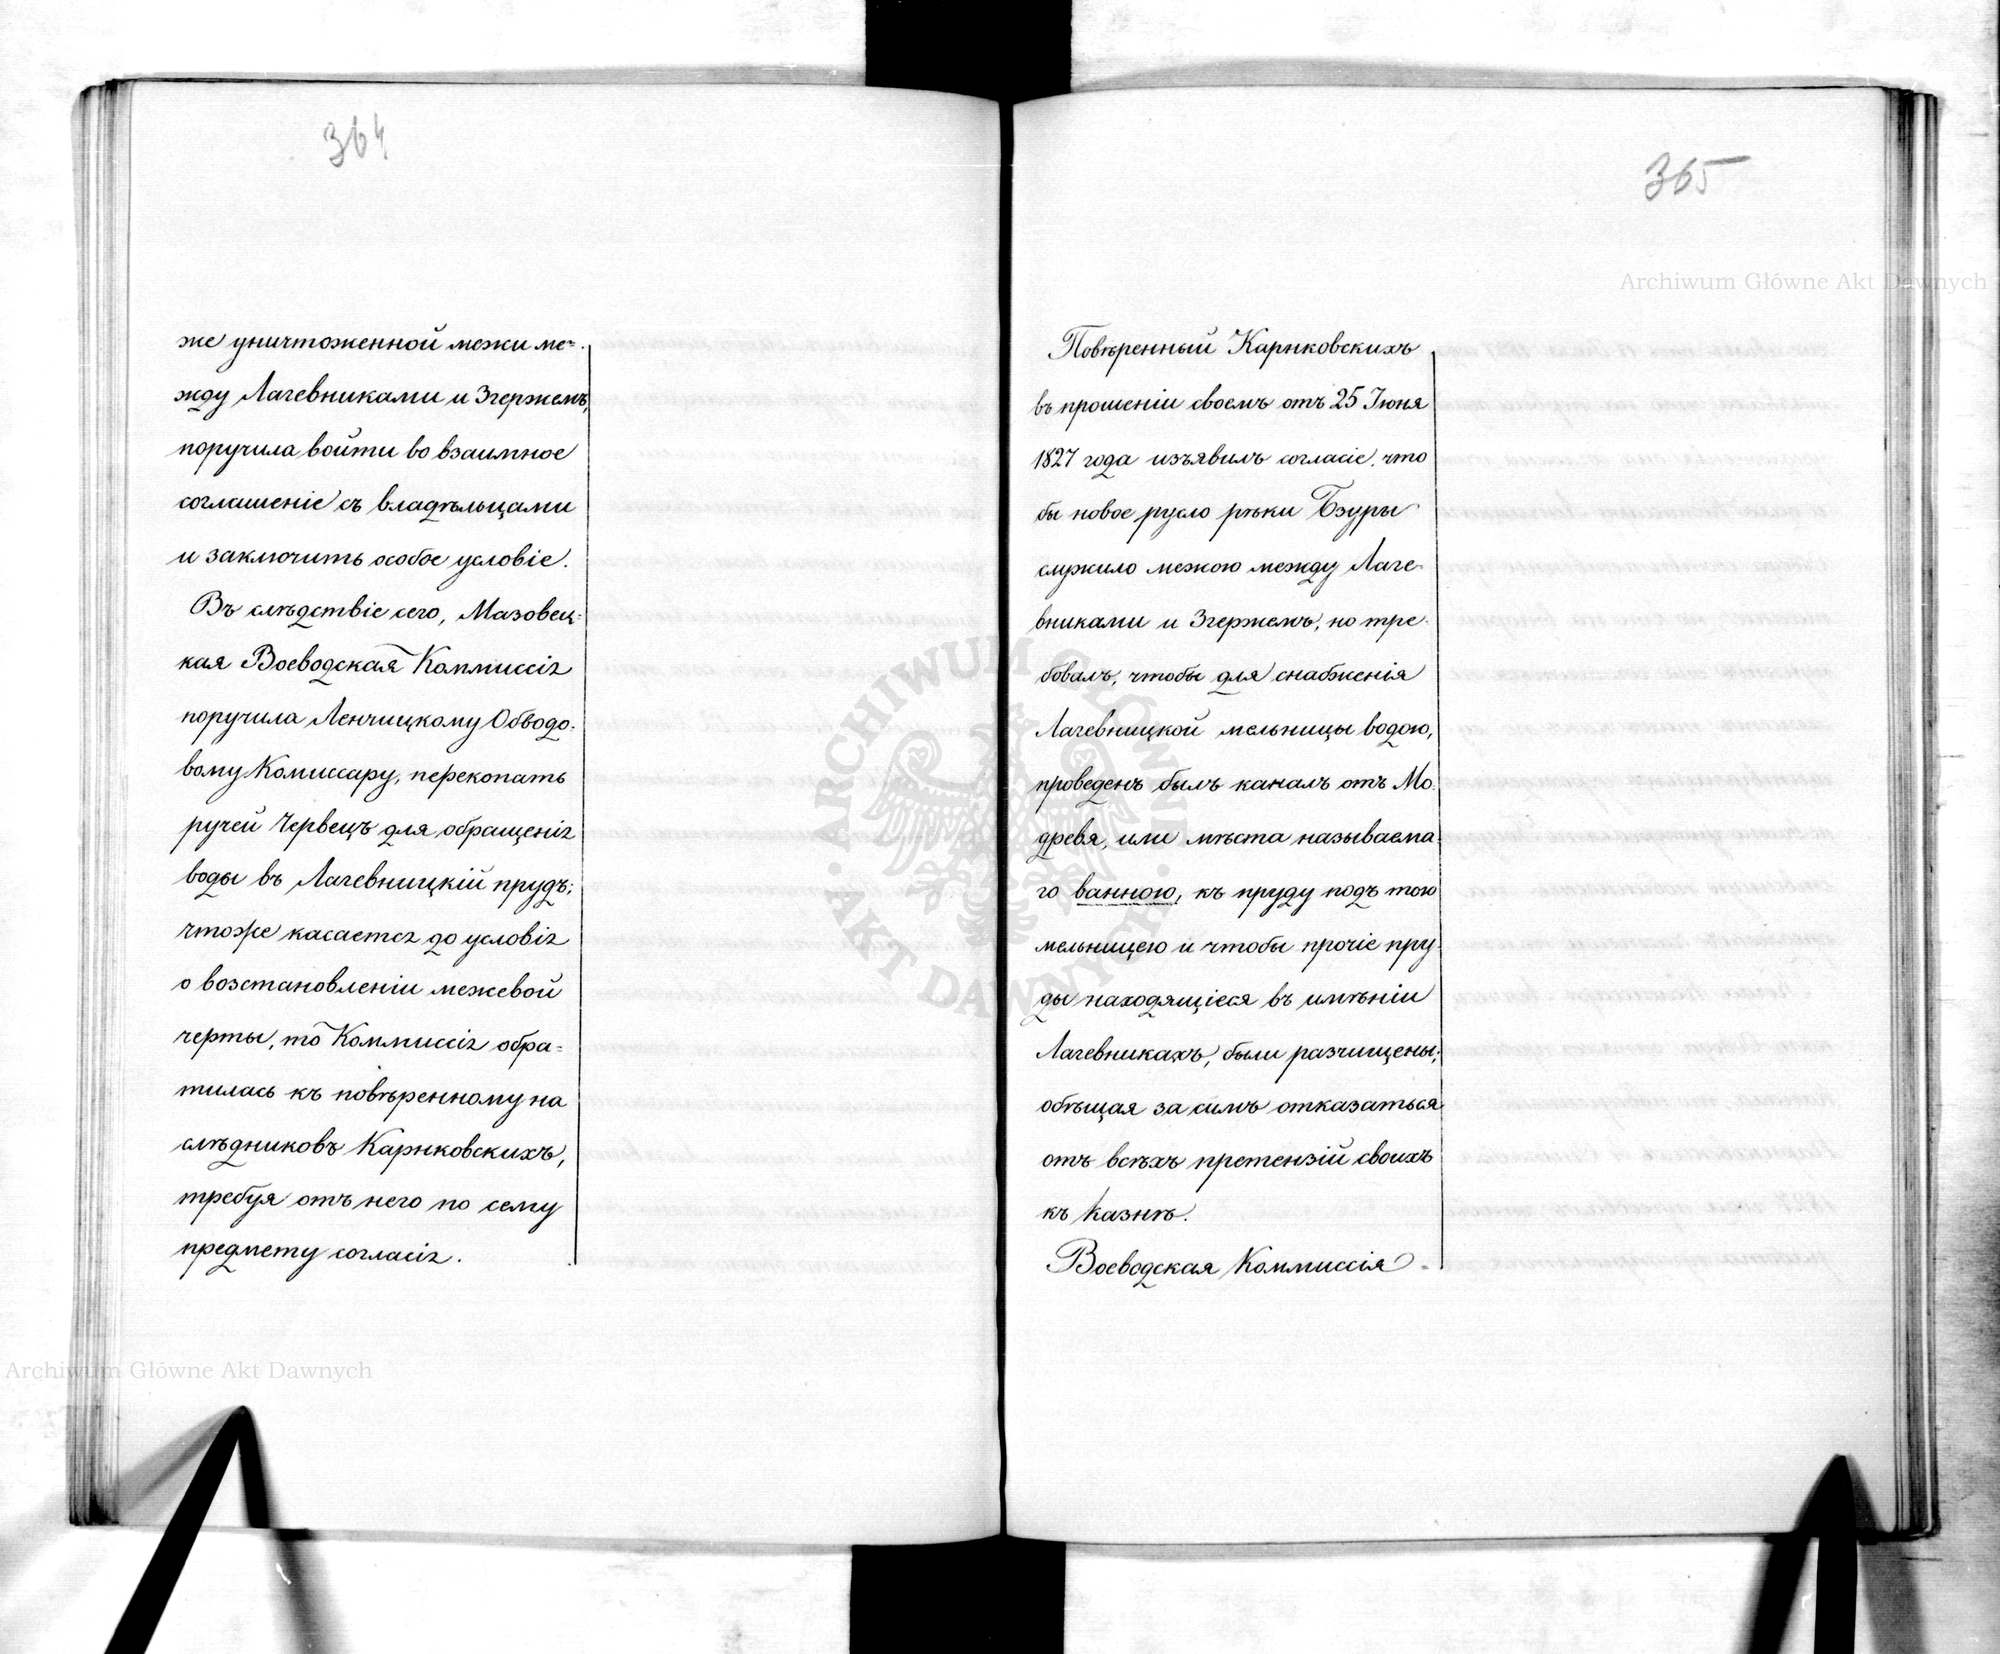 364
же уничтоженной межи ме=
жду Лагевниками и Згержемъ,
поручила войти во взаимное
соглашеніе съ владѣльцами
и заключить особое условіе.
Въ слѣдствіе сего, Мазовец=
кая Воеводская Коммиссія
поручила Ленчицкому Обводо-
вому Комиссару, перекопать
ручей Червецъ для обращенія
воды въ Лагевницкій прудъ;
чтоже касается до условія
о возстановленіи межевой
черты, то Коммиссія обра=
тилась къ повѣренному на
слѣдниковъ Карнковскихъ,
требуя отъ него по сему
предмету согласія.
365
Повѣренный Карнковскихъ
въ прошеніи своемъ отъ 25 Іюня
1827 года изъявилъ согласіе, что
бы новое русло рѣки Бзуры
служило межою между Лаге-
вниками и Згержемъ, но тре-
бовалъ, чтобы для снабженія
Лагевницкой мельницы водою,
проведенъ былъ каналъ отъ Мо-
древя, или мѣста называема-
го ванною, къ пруду подъ тою
мельницею и чтобы прочіе пру
ды находящіеся въ имѣніи
Лагевникахъ, были разчищены;
обѣщая за симъ отказаться
отъ всѣхъ претензій своихъ
къ казнѣ.
Воеводская Коммиссія
Archiwum Główne Akt Dawnych
Archiwum Główne Akt Dawnych
ARCHIWUM GŁÓWNE
AKT DAWNYCH